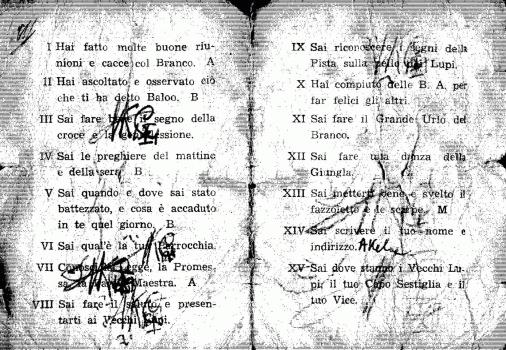 I Hai fatto molte buone riu-
nioni e cacce col Branco. A
II Hai ascoltato e osservato ciò
che ti ha detto Baloo. B
III Sai fare bene il segno della
croce e la genuflessione.
IV Sai le preghiere del mattino
e della sera B
V Sai quando e dove sai stato
battezzato, e cosa è accaduto
in te quel giorno. B
VI Sai qual'è la tua Parrocchia.
VII Conosci la Legge, la Promes-
sa, la Maestra. A
VIII Sai fare il saluto e presen-
tarti ai Vecchi Lupi.
IX Sai riconoscere i segni della
Pista sulla dei Lupi.
X Hai compiuto delle B. A. per
far felici gli altri.
XI Sai fare il Grande Urlo del
Branco.
XII Sai fare una danza della
Giungla.
XIII Sai metterti bene e svelto il
fazzoletto e le scarpe. M
XIV Sai scrivere il tuo nome e
indirizzo. Akela
XV Sai dove stanno i Vecchi Lu-
pi, il tuo Capo Sestiglia e il
tuo Vice.